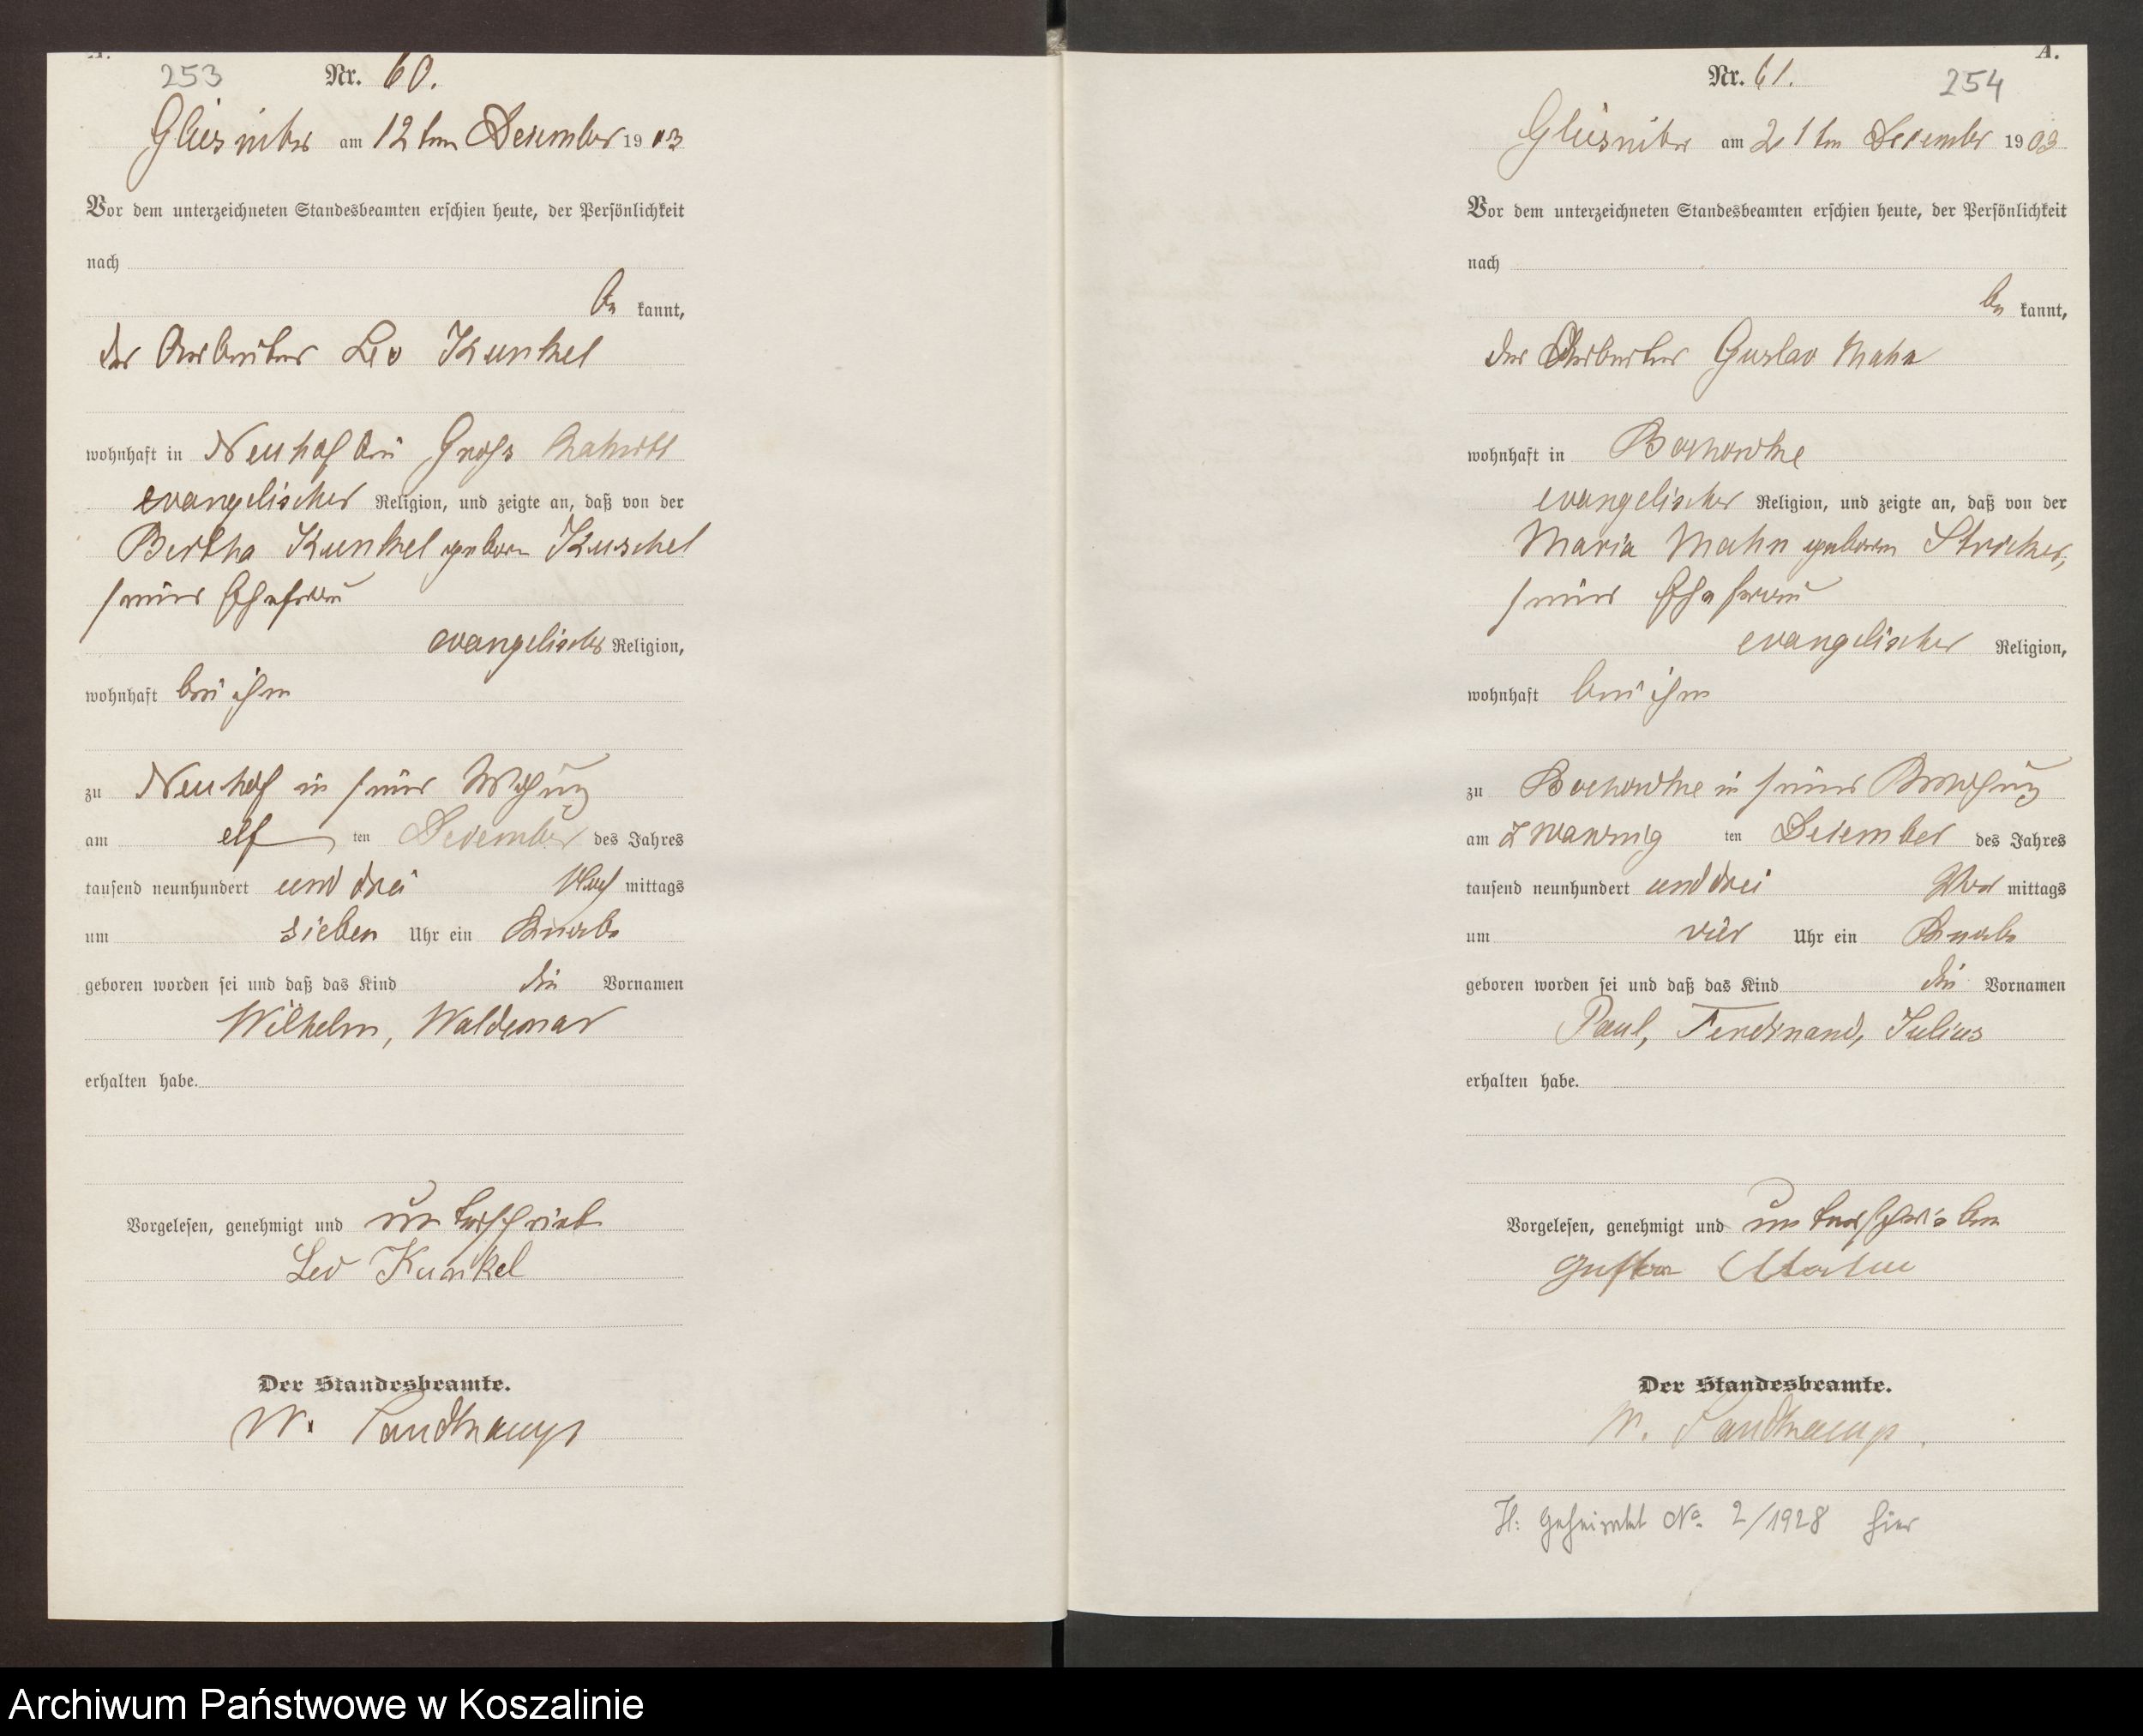 A.
253 Nr. 60.
Gliesnitz am 12ten Dezember 1903
Vor dem unterzeichneten Standesbeamten erschien heute, der Persönlichkeit
nach
be kannt,
der Arbeiter Leo Kunkel
wohnhaft in Neuhof bei Groß
evangelischer Religion, und zeigte an, daß von der
Bertha Kunkel geboren Kuschel
seiner Ehefrau
evangelischer Religion,
wohnhaft bei ihm
zu Neuhof in seiner Wohnung
am elf ten Dezember des Jahres
tausend neunhundert und drei Nach mittags
um sieben Uhr ein Knabe
geboren worden sei und daß das Kind die Vornamen
Wilhelm, Waldemar
erhalten habe.
Vorgelesen, genehmigt und unterschrieben
Leo Kunkel
Der Standesbeamte.
W. Sandkamp
A.
Nr. 61. 254
Gliesnitz am 21ten Dezember 1903
Vor dem unterzeichneten Standesbeamten erschien heute, der Persönlichkeit
nach
be kannt,
der Arbeiter Gustav Mahn
wohnhaft in Bochowke
evangelischer Religion, und zeigte an, daß von der
Maria Mahn geboren
seiner Ehefrau
evangelischer Religion,
wohnhaft bei ihm
zu Bochowke in seiner Wohnung
am zwanzig ten Dezember des Jahres
tausend neunhundert und drei Vor mittags
um vier Uhr ein Knabe
geboren worden sei und daß das Kind die Vornamen
Paul, Ferdinand, Julius
erhalten habe.
Vorgelesen, genehmigt und unterschrieben
Gustav Mahn
Der Standesbeamte.
W. Sandkamp.
H: geheiratet No. 2/1928 hier
Archiwum Państwowe w Koszalinie